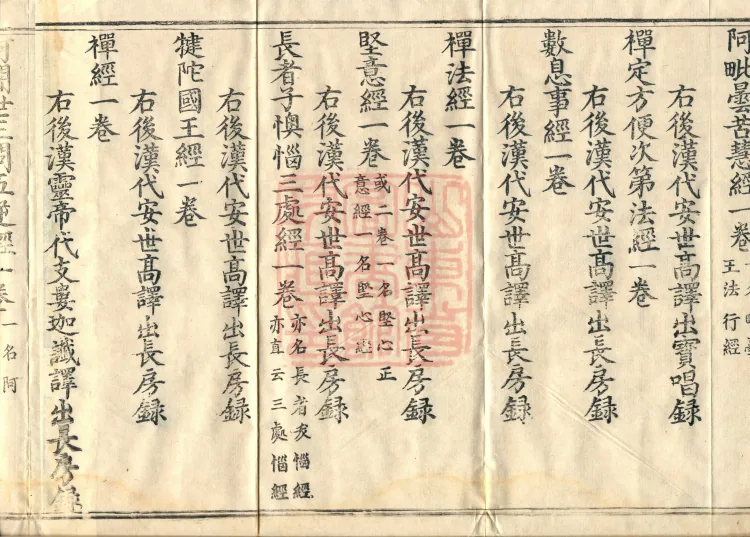 阿毗曇苦慧經一卷
王法行經
右後漢代安世髙譯出寶唱録
禪定方便次第法經一卷
右後漢代安世髙譯出長房録
數息事經一卷
右後漢代安世髙譯出長房録
禪法經一卷
右後漢代安世髙譯出長房録
堅意經一卷
或二卷一名堅心正
意經一名堅心經
右後漢代安世髙譯出長房録
長者子懊惱三處經一卷
亦名長者夜惱經
亦直云三處惱經
右後漢代安世髙譯出長房録
犍陀國王經一卷
右後漢代安世髙譯出長房録
禪經一卷
右後漢靈帝代支婁迦讖譯出長房録
問五逆經一卷
一名阿